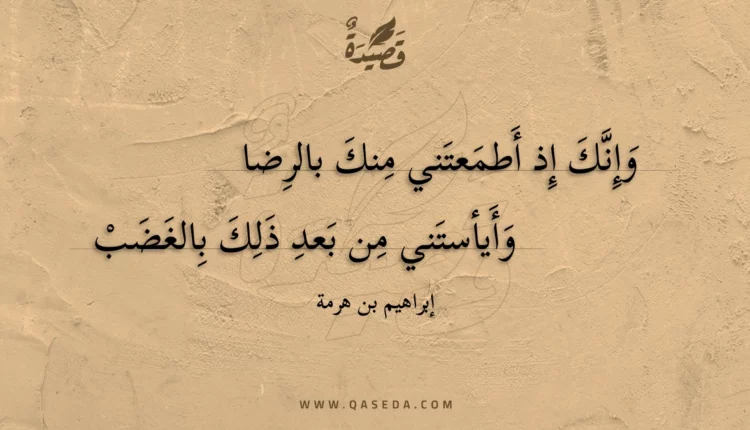 قَصِيدَةٌ
وَإِنَّكَ إِذ أَطمَعتَني مِنكَ بالرِضا
وَأَيأستَني مِن بَعدِ ذَلِكَ بِالغَضَبْ
إبراهيم بن هرمة
WWW.QASEDA.COM